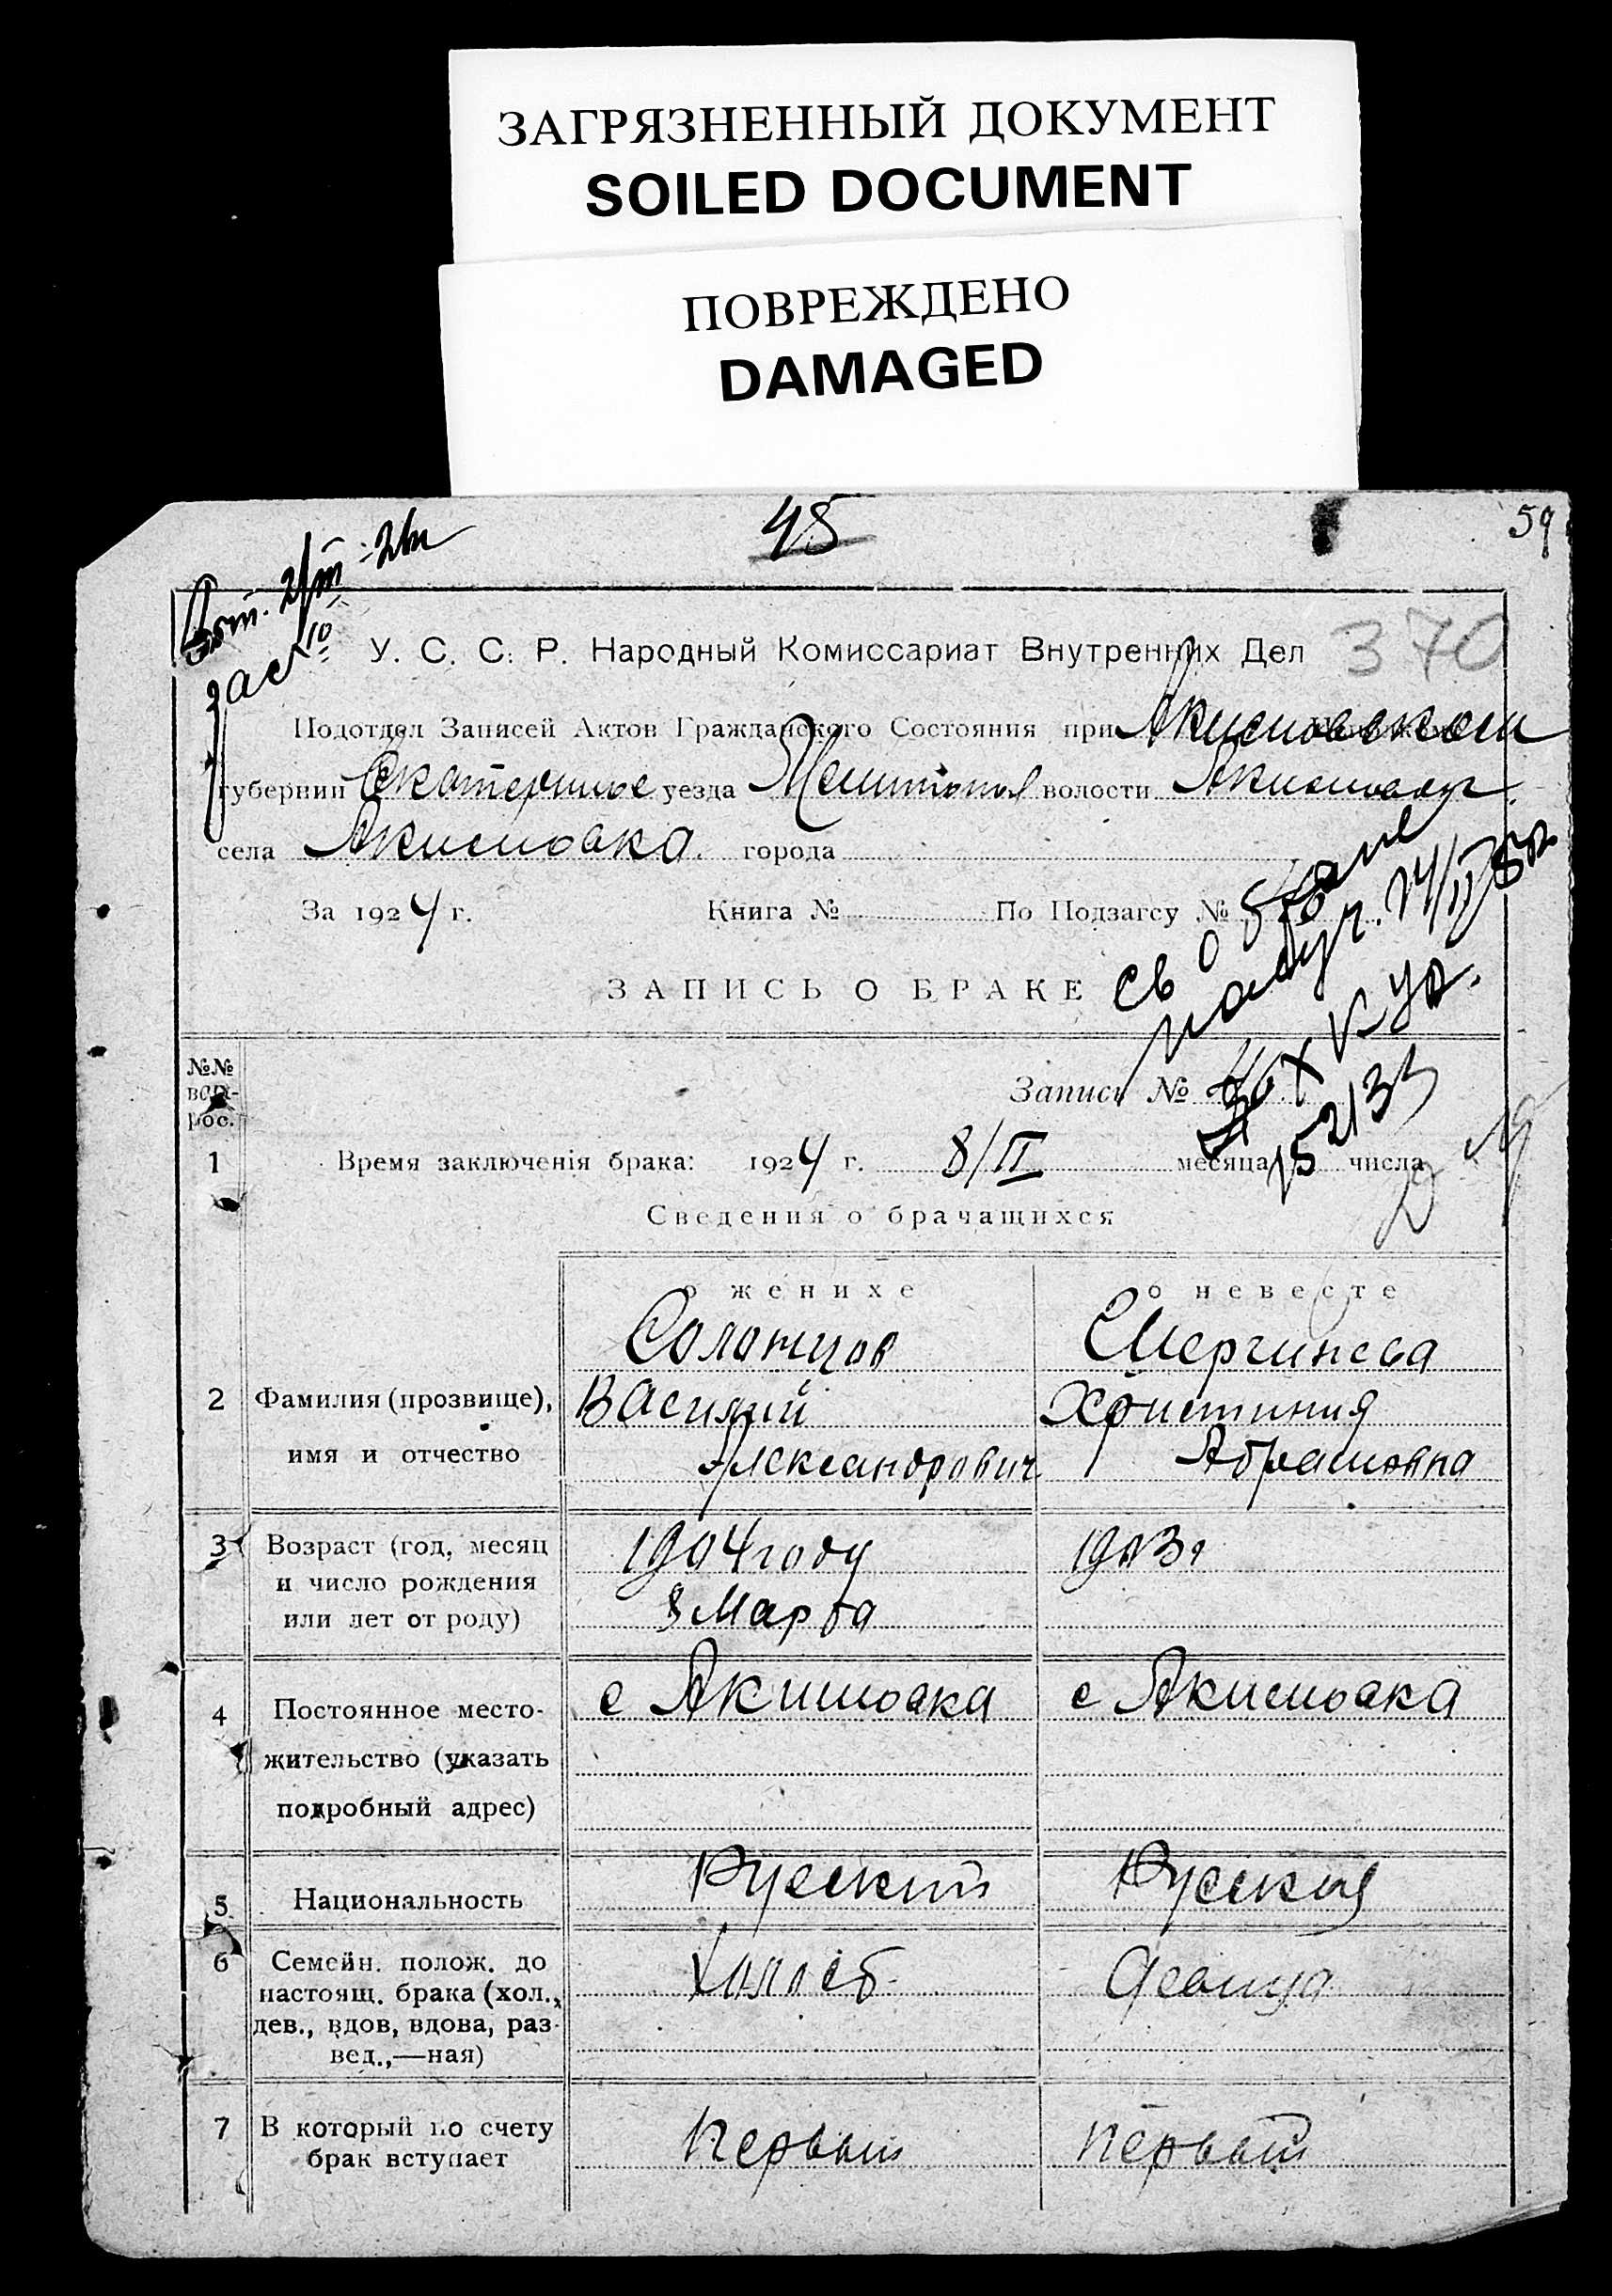 ЗАГРЯЗНЕННЫЙ ДОКУМЕНТ
SOILED DOCUMENT
ПОВРЕЖДЕНО
DAMAGED
45
59
370
У. С. С. Р. Народный Комиссариат Внутренних Дел
Подотдел Записей Актов Гражданского Состояния при Акимовском
губернии Екатеринос уезда Мелитопол волости Акимовск
села Акимовка города
За 1924 г. Книга № По Подзагсу №
св о браке
ЗАПИСЬ О БРАКЕ
№№ вопрос.
Запись №
1 Время заключенія брака: 1924 г. 8/II месяца числа
Сведения о брачащихся
о женихе о невесте
Солонцов
Василий
Александрович
Христиния
Абрамовна
2 Фамилия (прозвище),
имя и отчество
3 Возраст (год, месяц
и число рождения
или лет от роду)
1904 году
8 Марта
1903г
4 Постоянное место-
жительство (указать
подробный адрес)
с Акимовка с Акимовка
5 Национальность Руский Руская
6 Семейн. полож. до
настоящ. брака (хол.,
дев., вдов, вдова, раз-
вед.,—ная)
Холост девица
7 В который по счету
брак вступает
первый первый